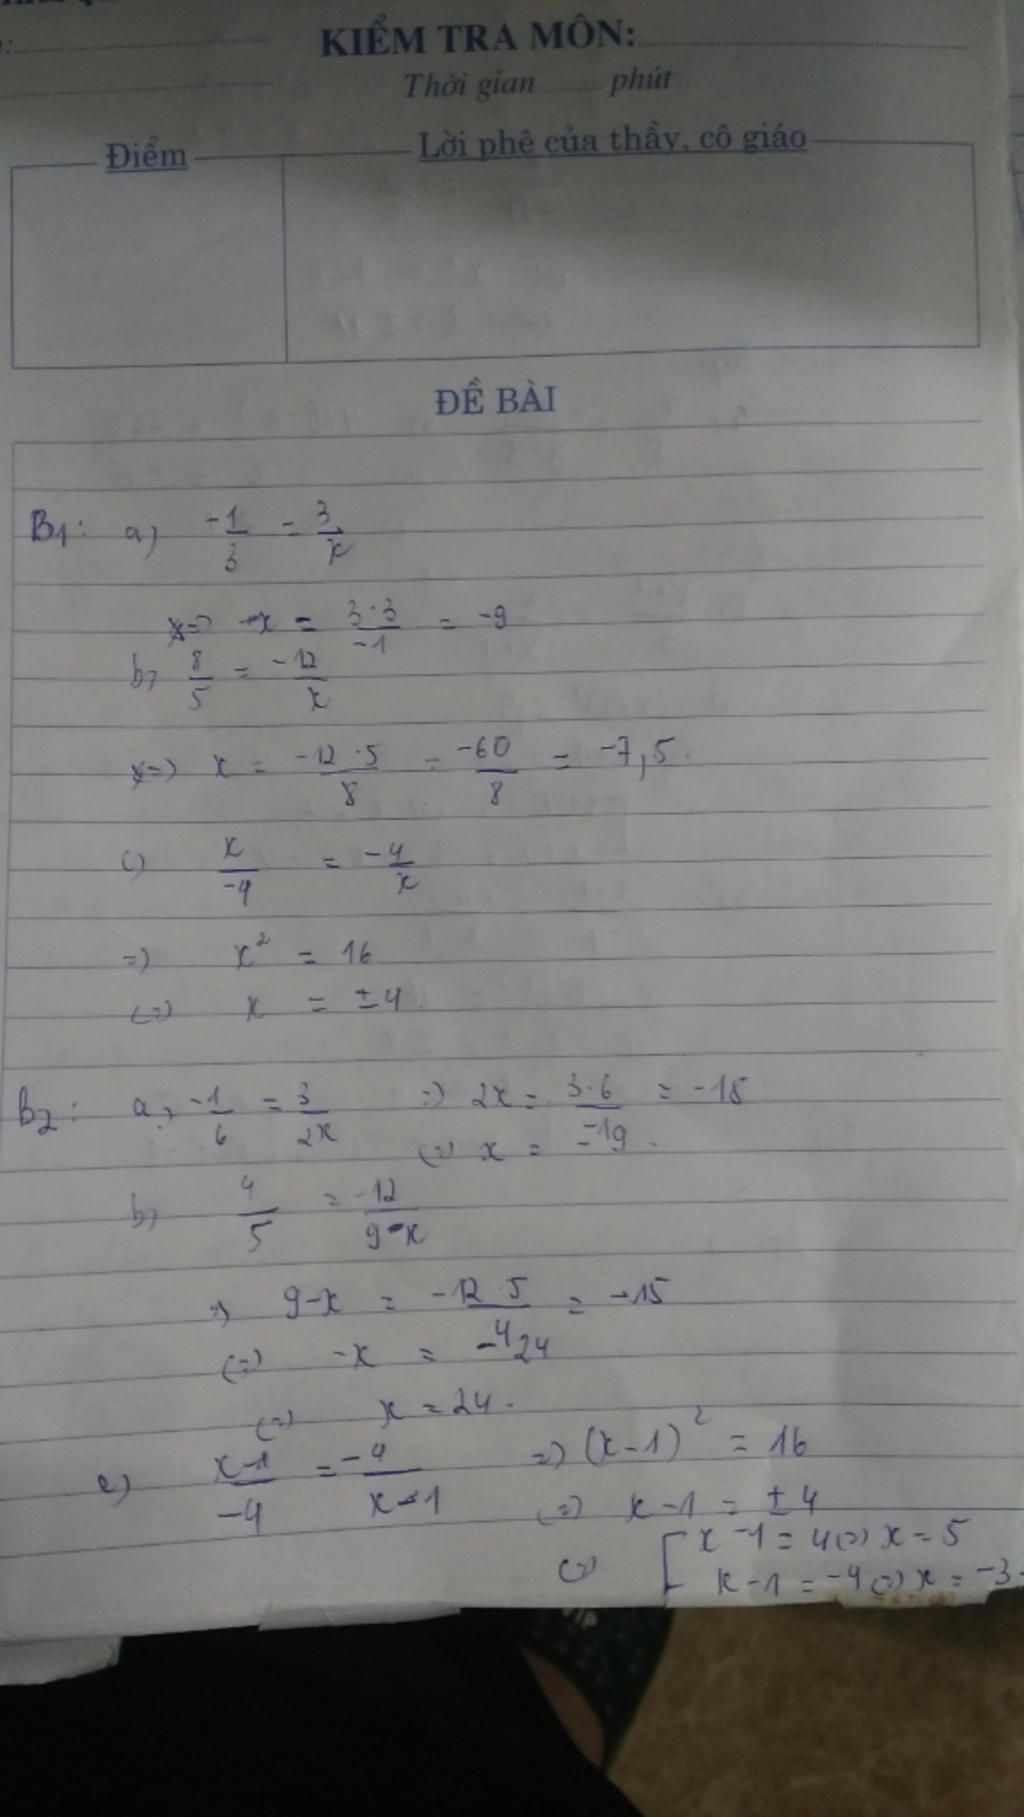 KIỂM TRA MÔN:
Thời gian ...... phút
Điểm
Lời phê của thầy, cô giáo
ĐỀ BÀI
B1: a) -1/3 = 3/x
=> x = 3·3/-1 = -9
b) 8/5 = -12/x
=> x = -12·5/8 = -60/8 = -7,5.
c) x/-4 = -4/x
=> x² = 16
<=> x = ±4
B2: a) -1/6 = 3/2x => 2x = 3·6/-1 = -18
<=> x = -9.
b) 4/5 = -12/9-x
=> 9-x = -12·5/4 = -15
<=> -x = -24
<=> x = 24.
c) x-1/-4 = -4/x-1 => (x-1)² = 16
<=> x-1 = ±4
<=> [ x-1 = 4 <=> x = 5
x-1 = -4 <=> x = -3.